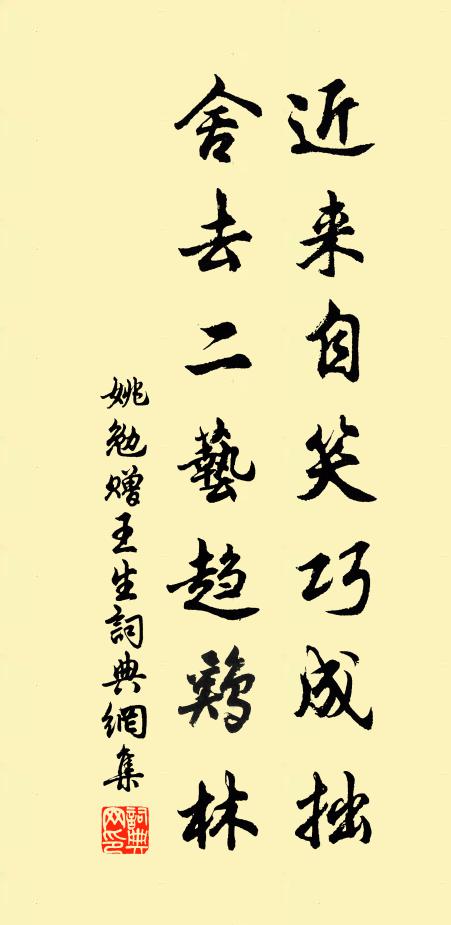 近来自笑巧成拙
舍去二藝趋鷄林
姚勉赠王生詞典網集
詞典網印